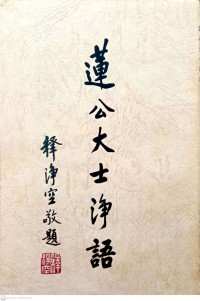 蓮公大士淨語
釋淨空敬題